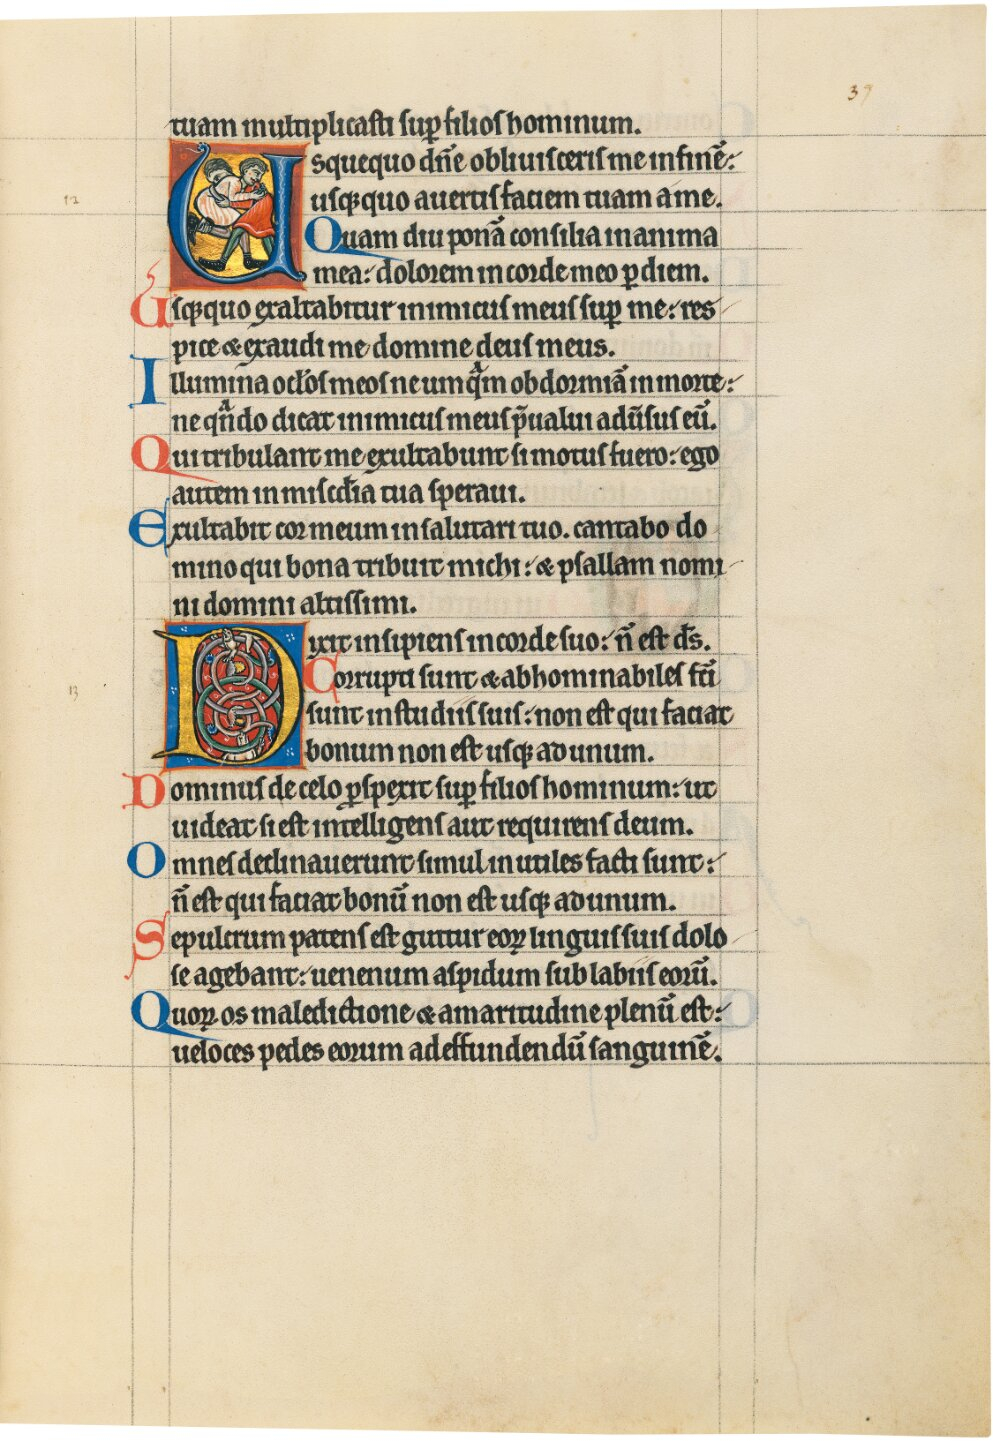 39
tuam multiplicasti sup̱ filios hominum.
Usquequo dn̄e obliuisceris me in finē:
usq;quo auertis faciem tuam a me.
12
Quam diu ponā consilia in anima
mea: dolorem in corde meo ꝑ diem.
Usq;quo exaltabitur inimicus meus sup̱ me: res
pice & exaudi me domine deus meus.
Illumina oclōs meos ne umqᵃ̄m obdormiā in morte:
ne qᵃ̄ndo dicat inimicus meus p̄ualui aduīsus eū.
Qui tribulant me exultabunt si motus fuero: ego
autem in misc̄dia tua speraui.
Exultabit cor meum in salutari tuo. cantabo do
mino qui bona tribuit michi: & psallam nomi
ni domini altissimi.
Dixit insipiens in corde suo: n̄ est ds̄.
13
Corrupti sunt & abhominabiles fc̄i
sunt in studiis suis: non est qui faciat
bonum non est usq; ad unum.
Dominus de celo ꝑspexit sup̱ filios hominum: ut
uideat si est intelligens aut requirens deum.
Omnes declinauerunt simul inutiles facti sunt:
n̄ est qui faciat bonū non est usq; ad unum.
Sepulcrum patens est guttur eoꝝ linguis suis dolo
se agebant: uenenum aspidum sub labiis eorū.
Quoꝝ os maledictione & amaritudine plenū est:
ueloces pedes eorum ad effundendū sanguinē.